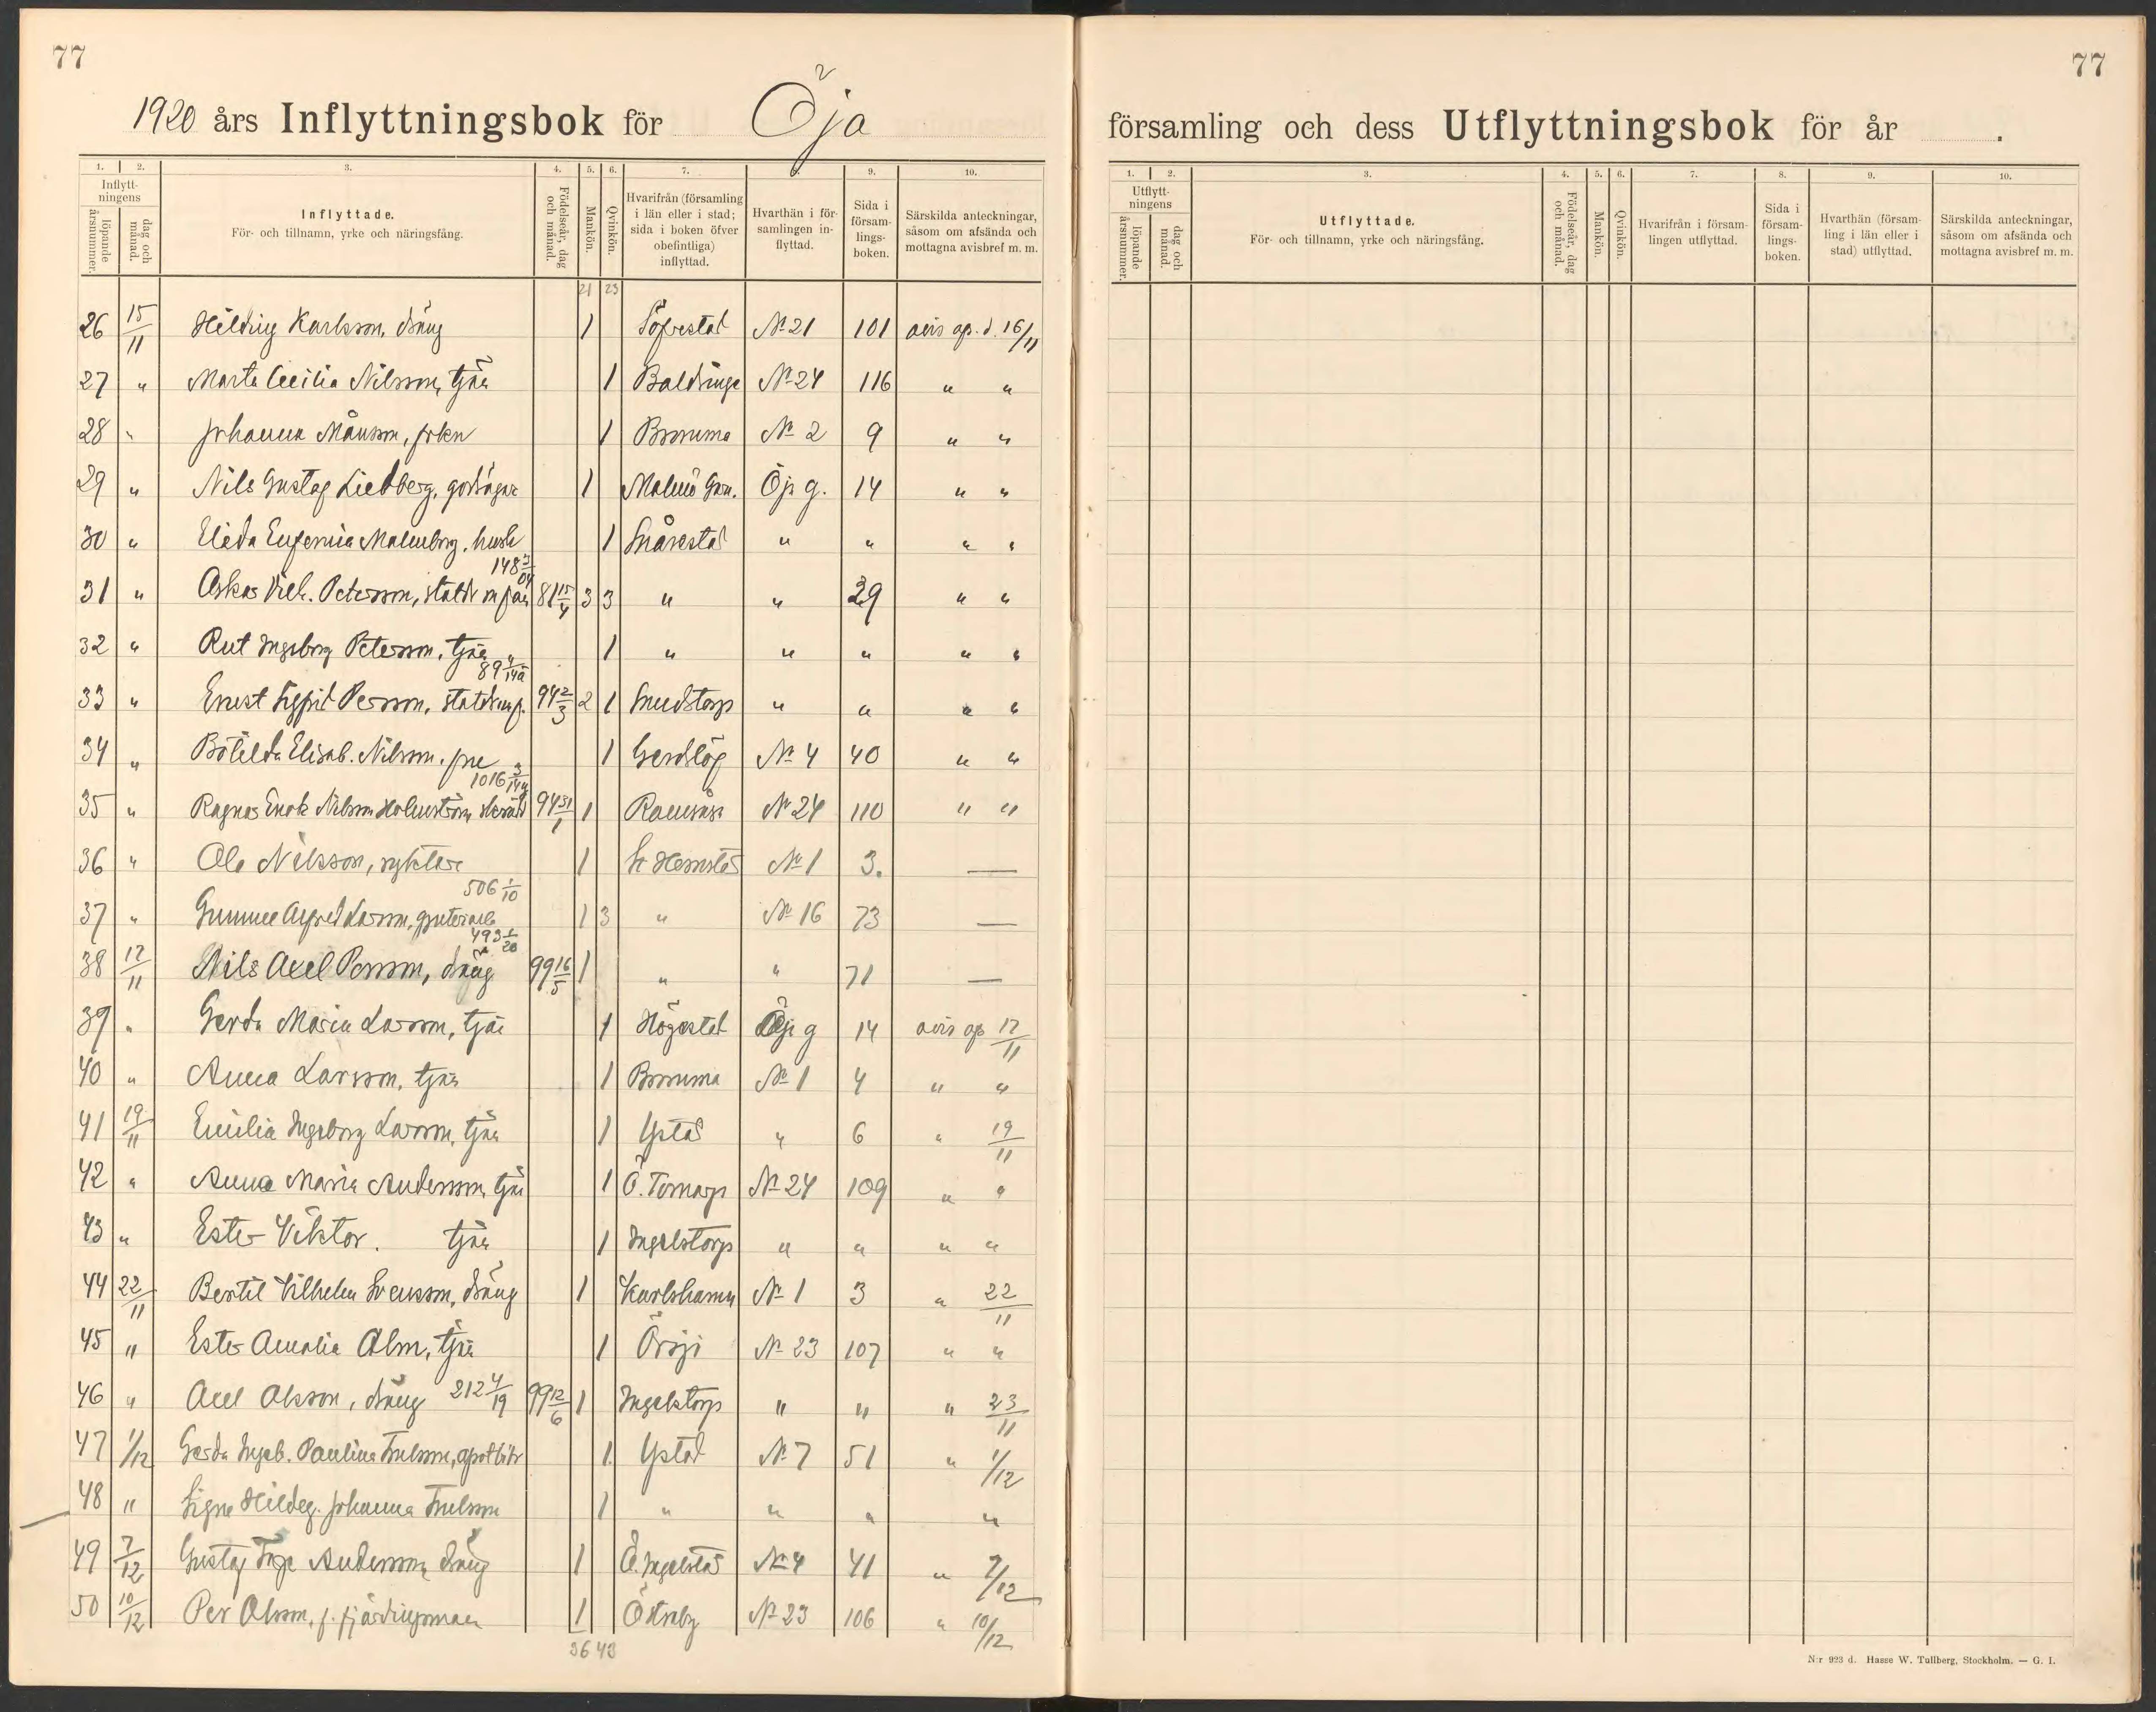 77
1920 års Inflyttningsbok för Öja
1. 2. 3. 4. 5. 6. 7. 8. 9. 10.
Inflytt-
ningens
löpande
årsnummer.
dag och
månad.
Inflyttade.
För- och tillnamn, yrke och näringsfång.
Födelseår, dag
och månad.
Mankön.
Qvinkön.
Hvarifrån (församling
i län eller i stad;
sida i boken öfver
obefintliga)
inflyttad.
Hvarthän i för-
samlingen in-
flyttad.
Sida i
försam-
lings-
boken.
Särskilda anteckningar,
såsom om afsända och
mottagna avisbref m. m.
21 23
26 15/11 Hilding Karlsson, dräng 1 Söfvestad No 21 101 avis op. d. 16/11
27 " Marta Cecilia Nilsson, tjän 1 Baldringe No 24 116 " "
28 " Johanna Månsson, frkn 1 Bromma No 2 9 " "
29 " Nils Gustaf Liedberg, godsägar 1 Malmö Garn. Öja g. 14 " "
30 " Elida Eufemia Malmborg, hush 1 Snårestad " " " "
148 3/04
31 " Oskar Vilh. Peterson, statdr m fam 81 15/4 3 3 " " 39 " "
32 " Rut Ingeborg Peterson, tjän 1 " " " " "
33 " Ernst Sigfrid Persson, statdr m f. 94 2/3 2 1 Smedstorp " " " "
34 " Botilda Elisab. Nilsson, fru 1 Gerdslöf No 4 40 " "
35 " Ragnar Enok Nilsson Holmström 94 31/1 1 Ramsåsa No 24 110 " "
36 " Ola Nilsson, ryktare 1 St Herrestad No 1 3. —
506 1/10
37 " Gumme Alfred Larsson, 1 3 " No 16 73 —
493 1/20
38 12/11 Nils Axel Persson, dräng 99 16/5 1 " " 71 —
39 " Gerda Maria Larsson, tjän 1 Högestad Öja g 14 avis op 12/11
40 " Anna Larsson, tjän 1 Bromma No 1 4 " "
41 19/11 Emilia Ingeborg Larsson, tjän 1 Ystad " 6 " 19/11
42 " Anna Maria Andersson, tjän 1 Ö. Tomarp No 24 109 " "
43 " Ester Viktor. tjän 1 Ingelstorp " " " "
44 22/11 Bertil Vilhelm Svensson, dräng 1 Karlshamn No 1 3 " 22/11
45 " Ester Amalia Alm, tjän 1 Örsjö No 23 107 " "
46 " Axel Olsson, dräng 212 4/19 99 12/6 1 Ingelstorp " " " 23/11
47 1/12 Gerda Ingeb. Paulina Truelsson, 1 Ystad No 7 51 " 1/12
48 " Signe Hildeg. Johanna Truelsson 1 " " " "
49 7/12 Gustaf Tage Andersson, dräng 1 Ö. Ingelstad No 4 41 " 7/12
50 10/12 Per Olsson, f. fjärdingsman 1 Östraby No 23 106 " 10/12
36 43
77
församling och dess Utflyttningsbok för år .
1. 2. 3. 4. 5. 6. 7. 8. 9. 10.
Utflytt-
ningens
löpande
årsnummer.
dag och
månad.
Utflyttade.
För- och tillnamn, yrke och näringsfång.
Födelseår, dag
och månad.
Mankön.
Qvinkön.
Hvarifrån i försam-
lingen utflyttad.
Sida i
försam-
lings-
boken.
Hvarthän (försam-
ling i län eller i
stad) utflyttad.
Särskilda anteckningar,
såsom om afsända och
mottagna avisbref m. m.
N:r 923 d. Hasse W. Tullberg, Stockholm. — G. I.